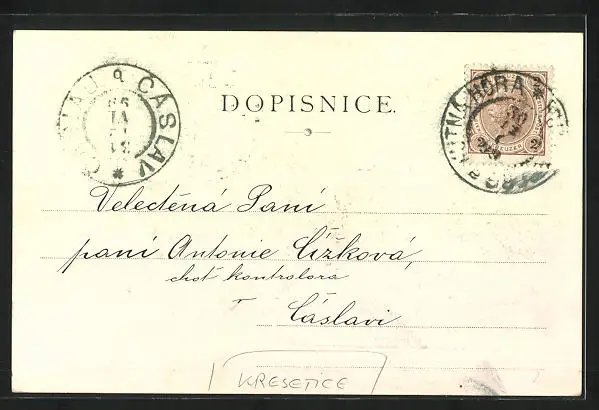 ČÁSLAV
DOPISNICE.
KUTNÁ HORA
2
KREUZER
Velectěná Paní
paní Antonie Čížková,
choť kontrolora
v
Čáslavi
KRESETICE